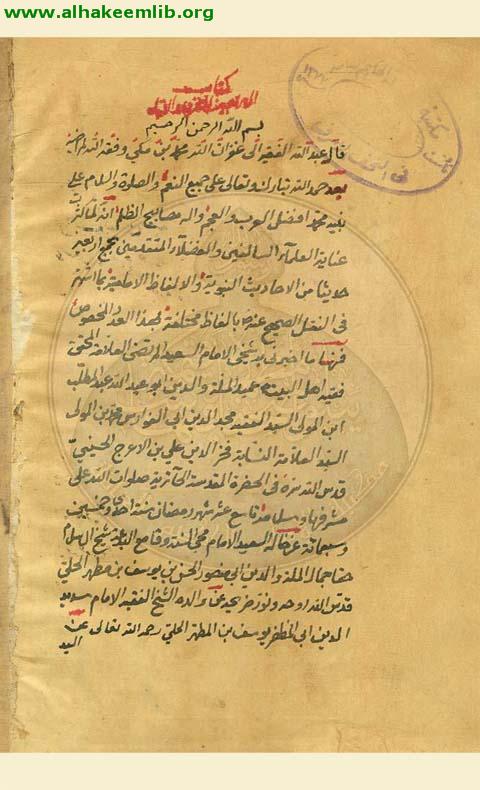 www.alhakeemlib.org
كتاب
بسم الله الرحمن الرحيم
قال عبد الله الفقير الى عفو الله محمد بن مكي وفقه الله لمراضيه
بعد حمد الله تبارك وتعالى على جميع النعم والصلوة والسلام على
نبيه محمد افضل العرب والعجم واله مصابيح الظلم انه لما كثرت
عناية العلماء السالفين والفضلاء المتقدمين بجمع اربعين
حديثا من الاحاديث النبوية والالفاظ الامامية بما اشتهر
فى النقل الصحيح عنه ص بالفاظ مختلفة لهذا العدد المخصوص
فمنها ما اخبرنى به شيخى الامام السعيد المرتضى العلامة المحقق
فقيه اهل البيت عميد الملة والدين ابو عبد الله عبد المطلب
ابن المولى السيد الفقيه مجد الدين ابى الفوارس محمد بن المولى
السيد العلامة النسابة فخر الدين على بن الاعرج الحسينى
قدس الله سره فى الحضرة المقدسة الحائرية صلوات الله على
مشرفها وسلامه تاسع عشر شهر رمضان سنة احدى وخمسين
وسبعمائة عن خاله السعيد الامام محي السنة وقامع البدعة شيخ الاسلام
حقا جمال الملة والدين ابى منصور الحسن بن يوسف بن مطهر الحلى
قدس الله روحه ونور ضريحه عن والده الشيخ الفقيه الامام سديد
الدين ابى المظفر يوسف بن المطهر الحلى رحمه الله تعالى عن
السيد